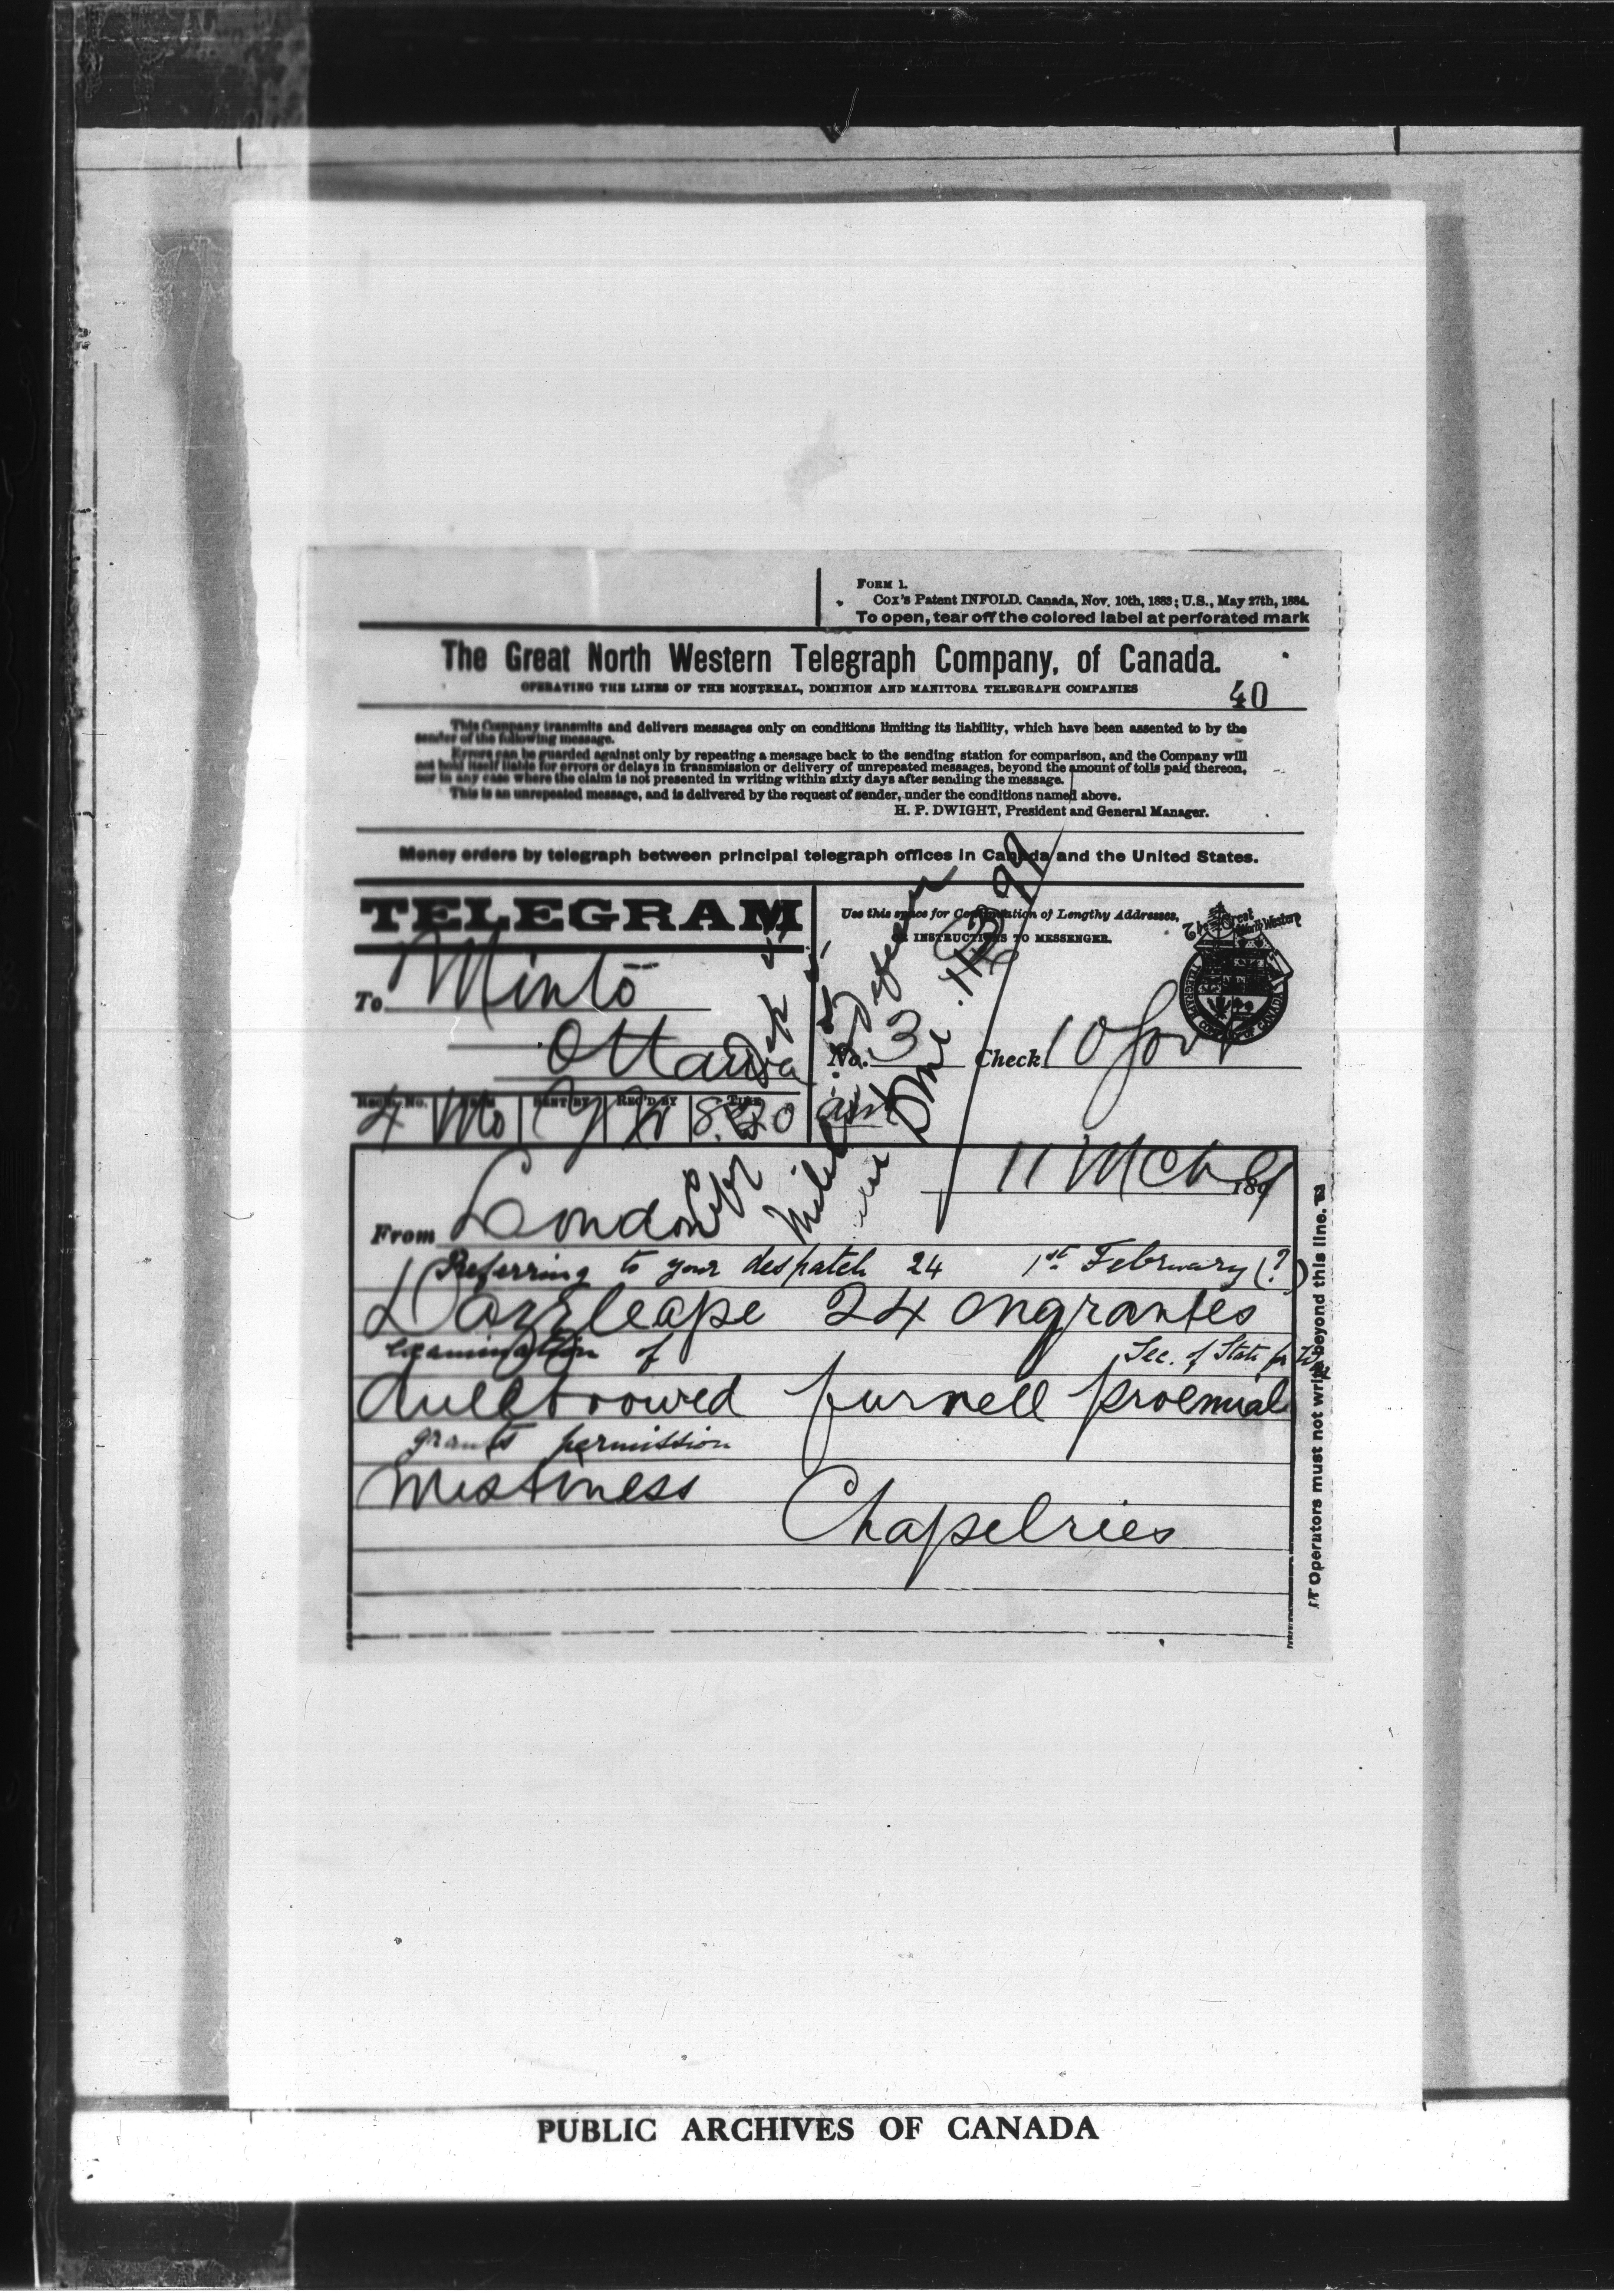 FORM 1.
Cox's Patent INFOLD. Canada, Nov. 10th, 1883; U.S., May 27th, 1884.
To open, tear off the colored label at perforated mark
The Great North Western Telegraph Company, of Canada.
OPERATING THE LINES OF THE MONTREAL, DOMINION AND MANITOBA TELEGRAPH COMPANIES
40
This Company transmits and delivers messages only on conditions limiting its liability, which have been assented to by the
sender of the following message.
Errors can be guarded against only by repeating a message back to the sending station for comparison, and the Company will
not hold itself liable for errors or delays in transmission or delivery of unrepeated messages, beyond the amount of tolls paid thereon,
nor in any case where the claim is not presented in writing within sixty days after sending the message.
This is an unrepeated message, and is delivered by the request of sender, under the conditions named above.
H. P. DWIGHT, President and General Manager.
Money orders by telegraph between principal telegraph offices in Canada and the United States.
TELEGRAM
Use this space for Continuation of Lengthy Addresses,
OR INSTRUCTIONS TO MESSENGER.
To Minto
Ottawa
No. 3 Check 10 Govt
SENT BY REC'D BY TIME
4 Mo
11 Mch 1899
From London
Referring to your despatch 24 1st February (?)
24 ongrantes
Examination of Sec. of State for War
dullbrowed furnell proemial
grants permission
mistiness
Chapelries
Operators must not write beyond this line.
PUBLIC ARCHIVES OF CANADA